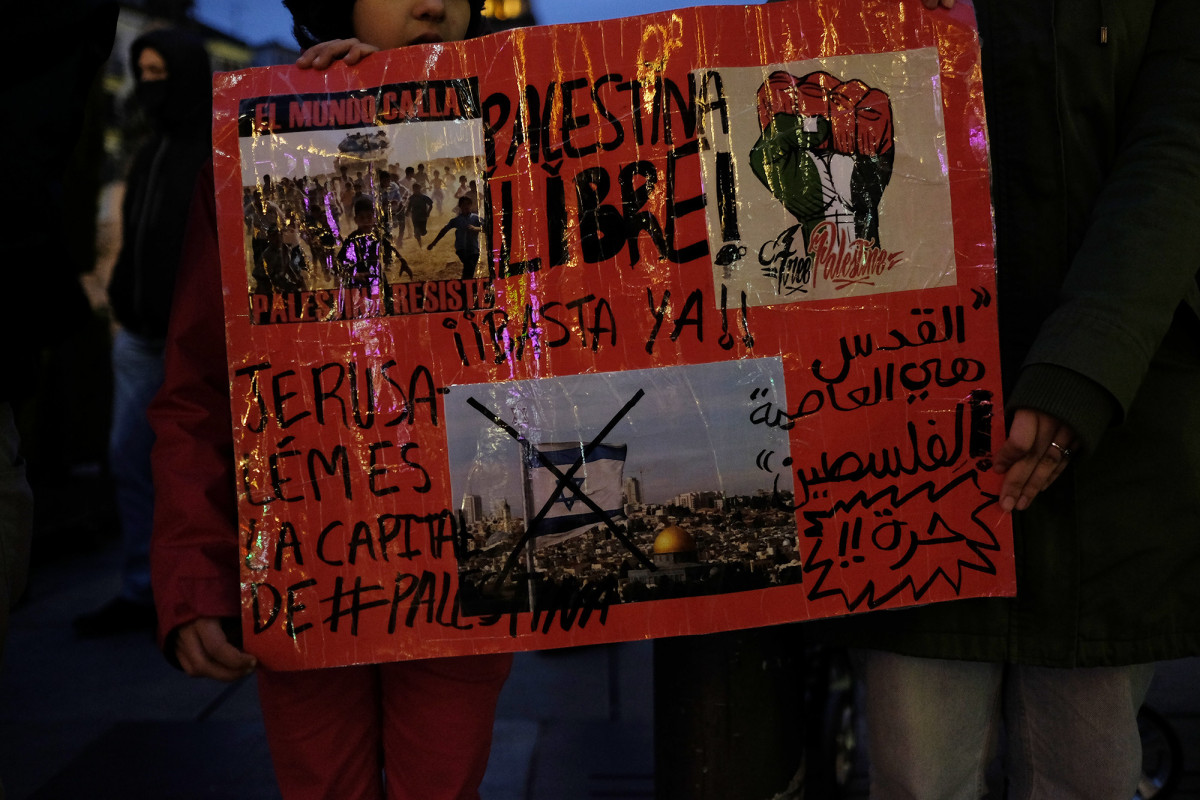 EL MUNDO CALLA
PALESTINA RESISTE
PALESTINA
LIBRE!
¡¡BASTA YA!!
Free Palestine
JERUSA-
LÉM ES
LA CAPITAL
DE #PALESTINA
"القدس
هي العاصمة"
"الفلسطين
حرة!!